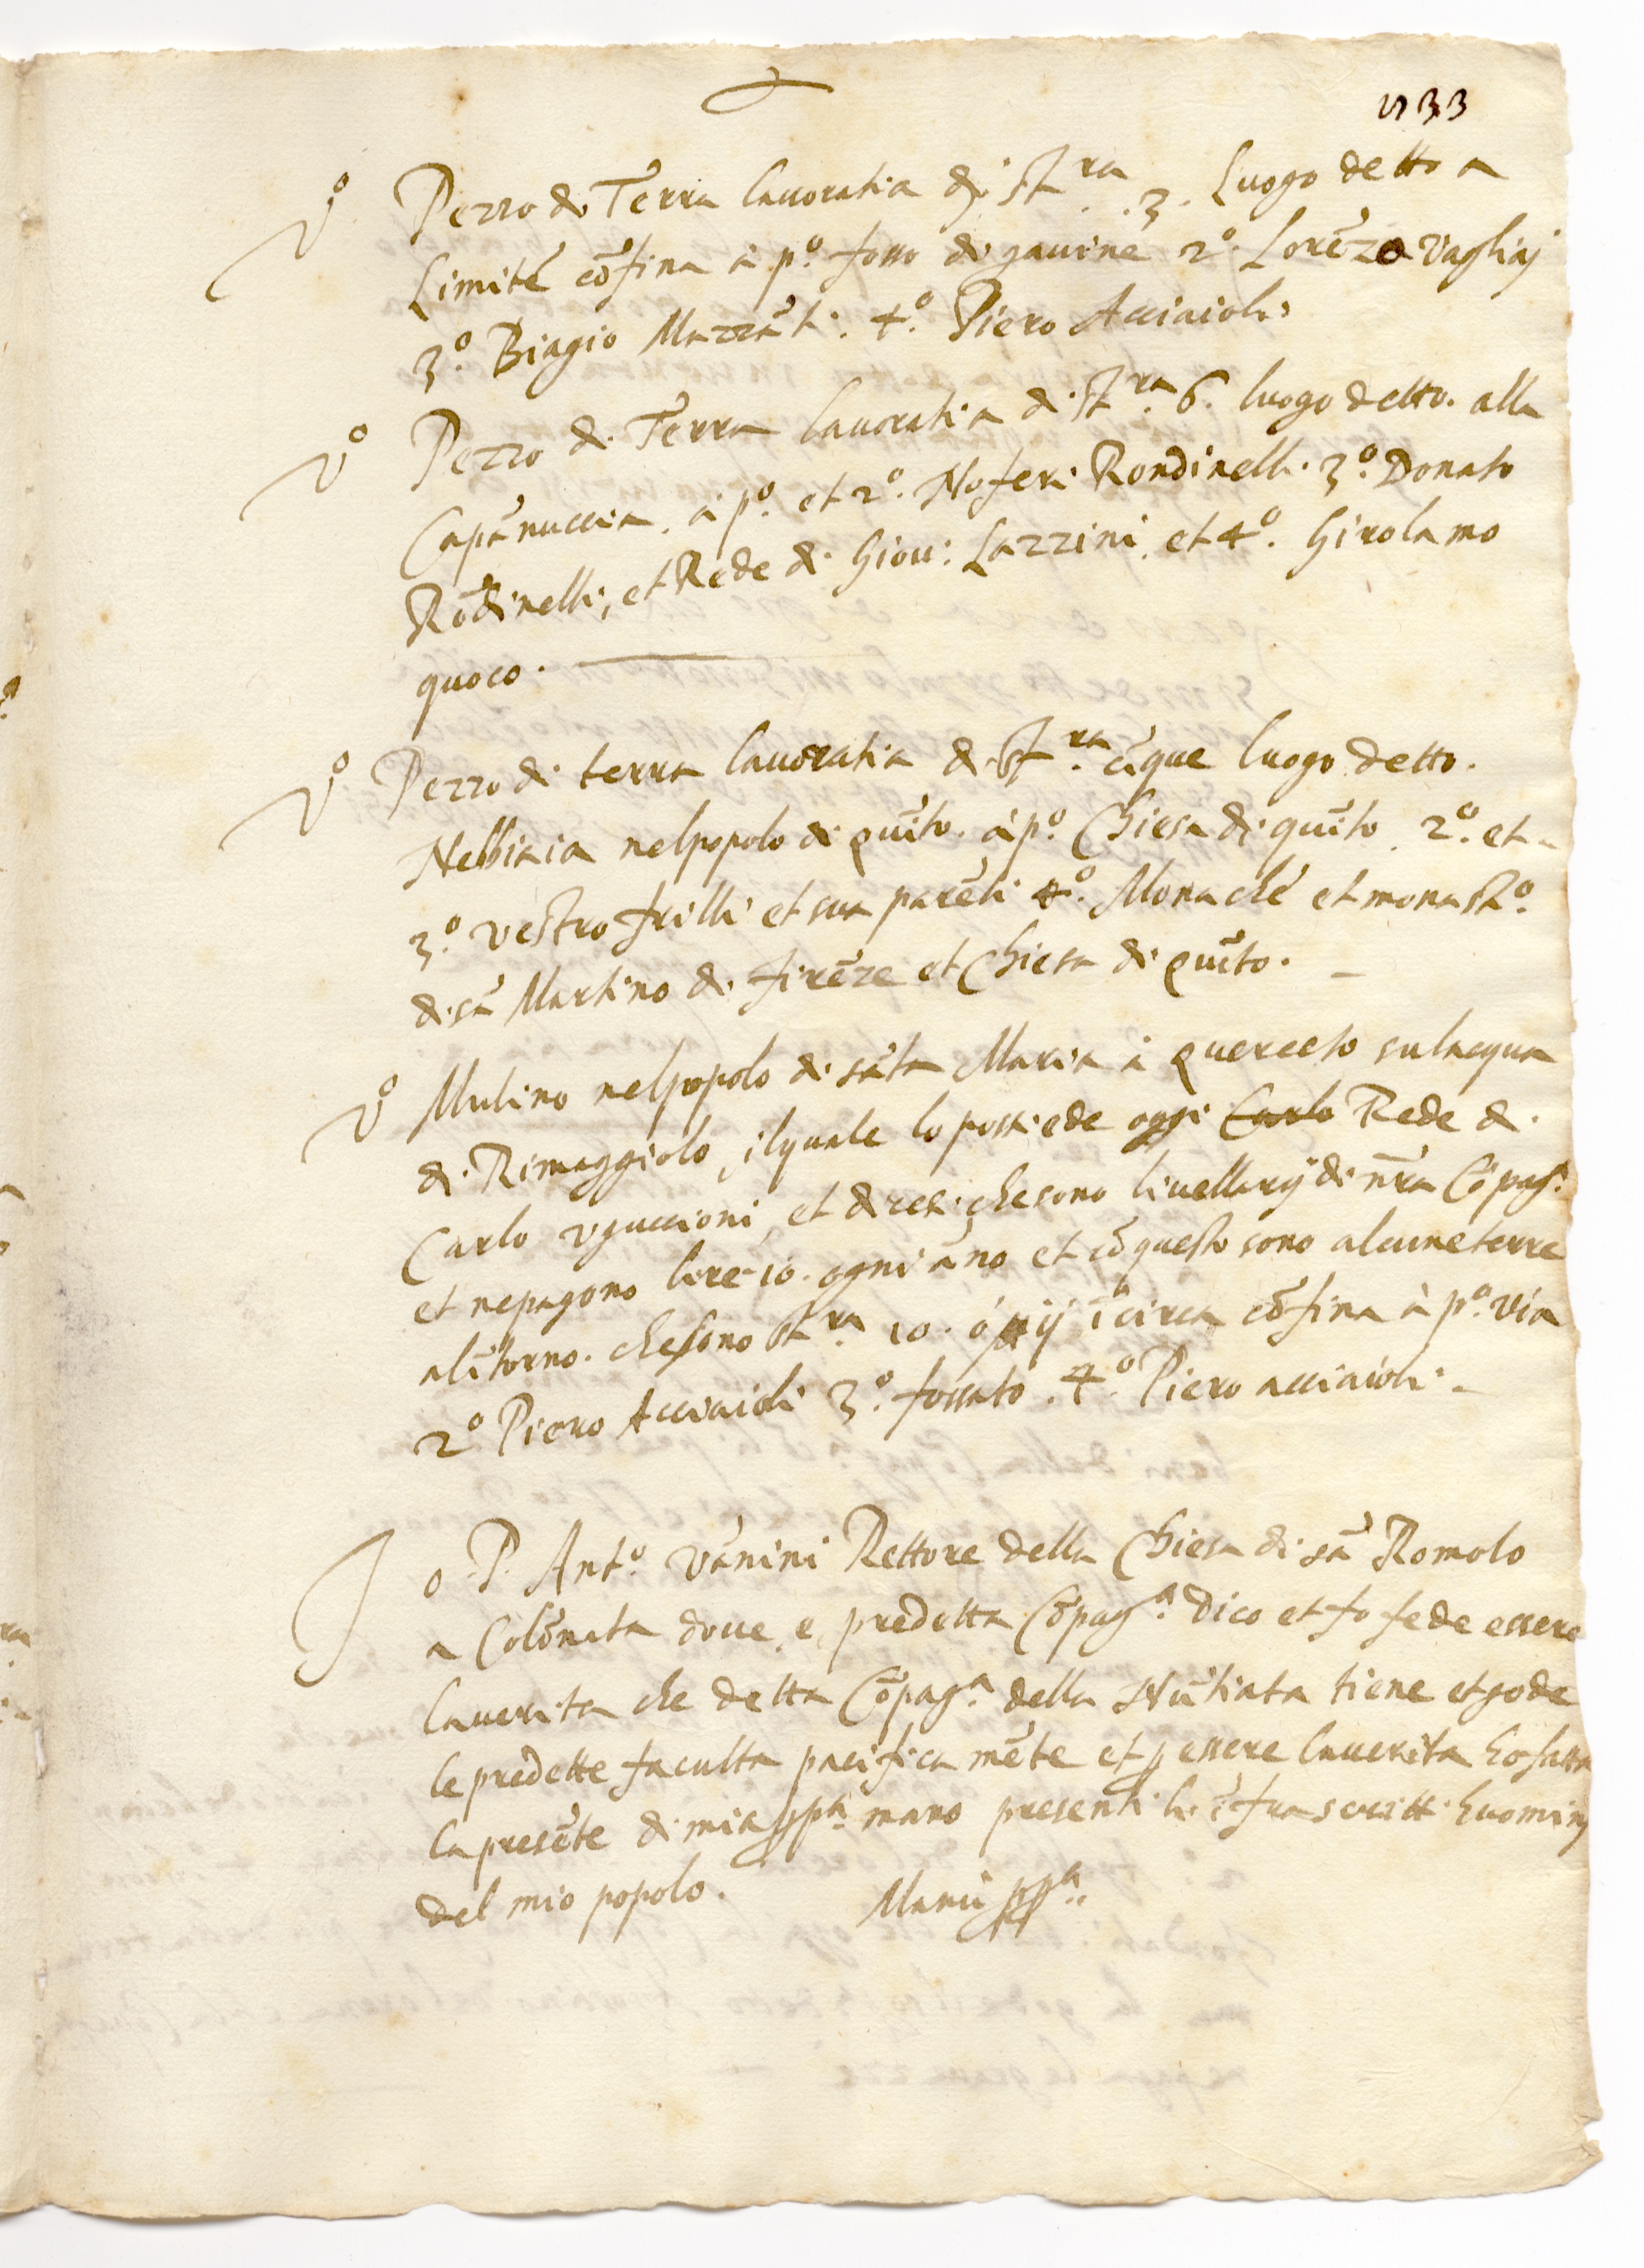 1733
Vº Pezzo di Terra lauoratia di Stra. 3. Luogo detto a
Limite cõfina à pº. fosso di gauine 2º. Lorẽzo vagliaj
3º. Biagio Mazzãti. 4º. Piero Acciaioli
Vº Pezzo di Terra lauoratia di Stra. 6. luogo detto. alla
Capãnuccia. à pº. et 2º. Noferi Rondinelli. 3º. Donato
Rõdinelli, et Rede di Giou: Lazzini et 4º. Girolamo
quoco.
Vº Pezzo di terra lauoratia di Stra. cĩque luogo detto.
Nebbiaia nelpopolo di quĩto. à pº. Chiesa di quĩto. 2º. et
3º. vestro frilli et sua parẽti 4º. Monache et monastº.
di sã Martino di firẽze et Chiesa di quĩto.
Vº Mulino nelpopolo di sãta Maria à querceto sulacqua
di Rimaggiolo, ilquale lo possiede oggi Carlo Rede di
Carlo vguccioni, et dicesi chesono liuellarij di nr̃a Cõpag.
et nepagono lire 10. ogni ãno et cõ questo sono alcune terre
alĩtorno. che sono Stra. 10. ó ĩ circa cõfina à pº. via
2º Piero Acciaioli 3º. fossato. 4º. Piero acciaioli.
Io P. Antº. vãnini Rettore della Chiesa di sã Romolo
a Colõnata doue e predetta Cõpagª. dico et fo fede essere
lauerita che detta Cõpagª. della Nũtiata tiene et gode
le predette faculta pacifica mẽte et p essere lauerita ho fatta
la presẽte di mia ppª. mano presenti li ĩfrascritti huominj
del mio popolo. Manu ppª.